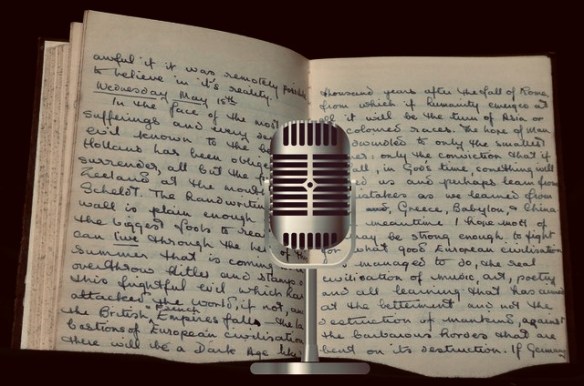 awful if it was remotely possible
to believe in it's reality.
Wednesday May 15th
In the face of the most
sufferings and every
evil known to the
Holland has been obliged
surrender, all but the
Zeeland at the mouth
Scheldt. The Handwriting
wall is plain enough
the biggest fools to read
can live through the hell of the
Summer that is coming
overthrow Hitler and stamp
this frightful evil which has
attacked the world, if not, and
the British, French Empires falls - the
bastions of European civilisation
there will be a Dark Age like
thousand years after the fall of Rome
from which if humanity emerges at
all it will be the turn of Asia or
coloured races. The hope of Man
dwindled to only the smallest
only the conviction that if
fail, in God's time, something will
us and perhaps learn from
mistakes as we learned from
Greece, Babylon, China
meantime I hope most of
may be strong enough to fight
for what good European civilisation
managed to do, the real
civilisation of music, art, poetry
and all learning that has aimed
at the betterment and not the
destruction of mankind, against
the barbarous hordes that are
bent on its destruction. If Germany